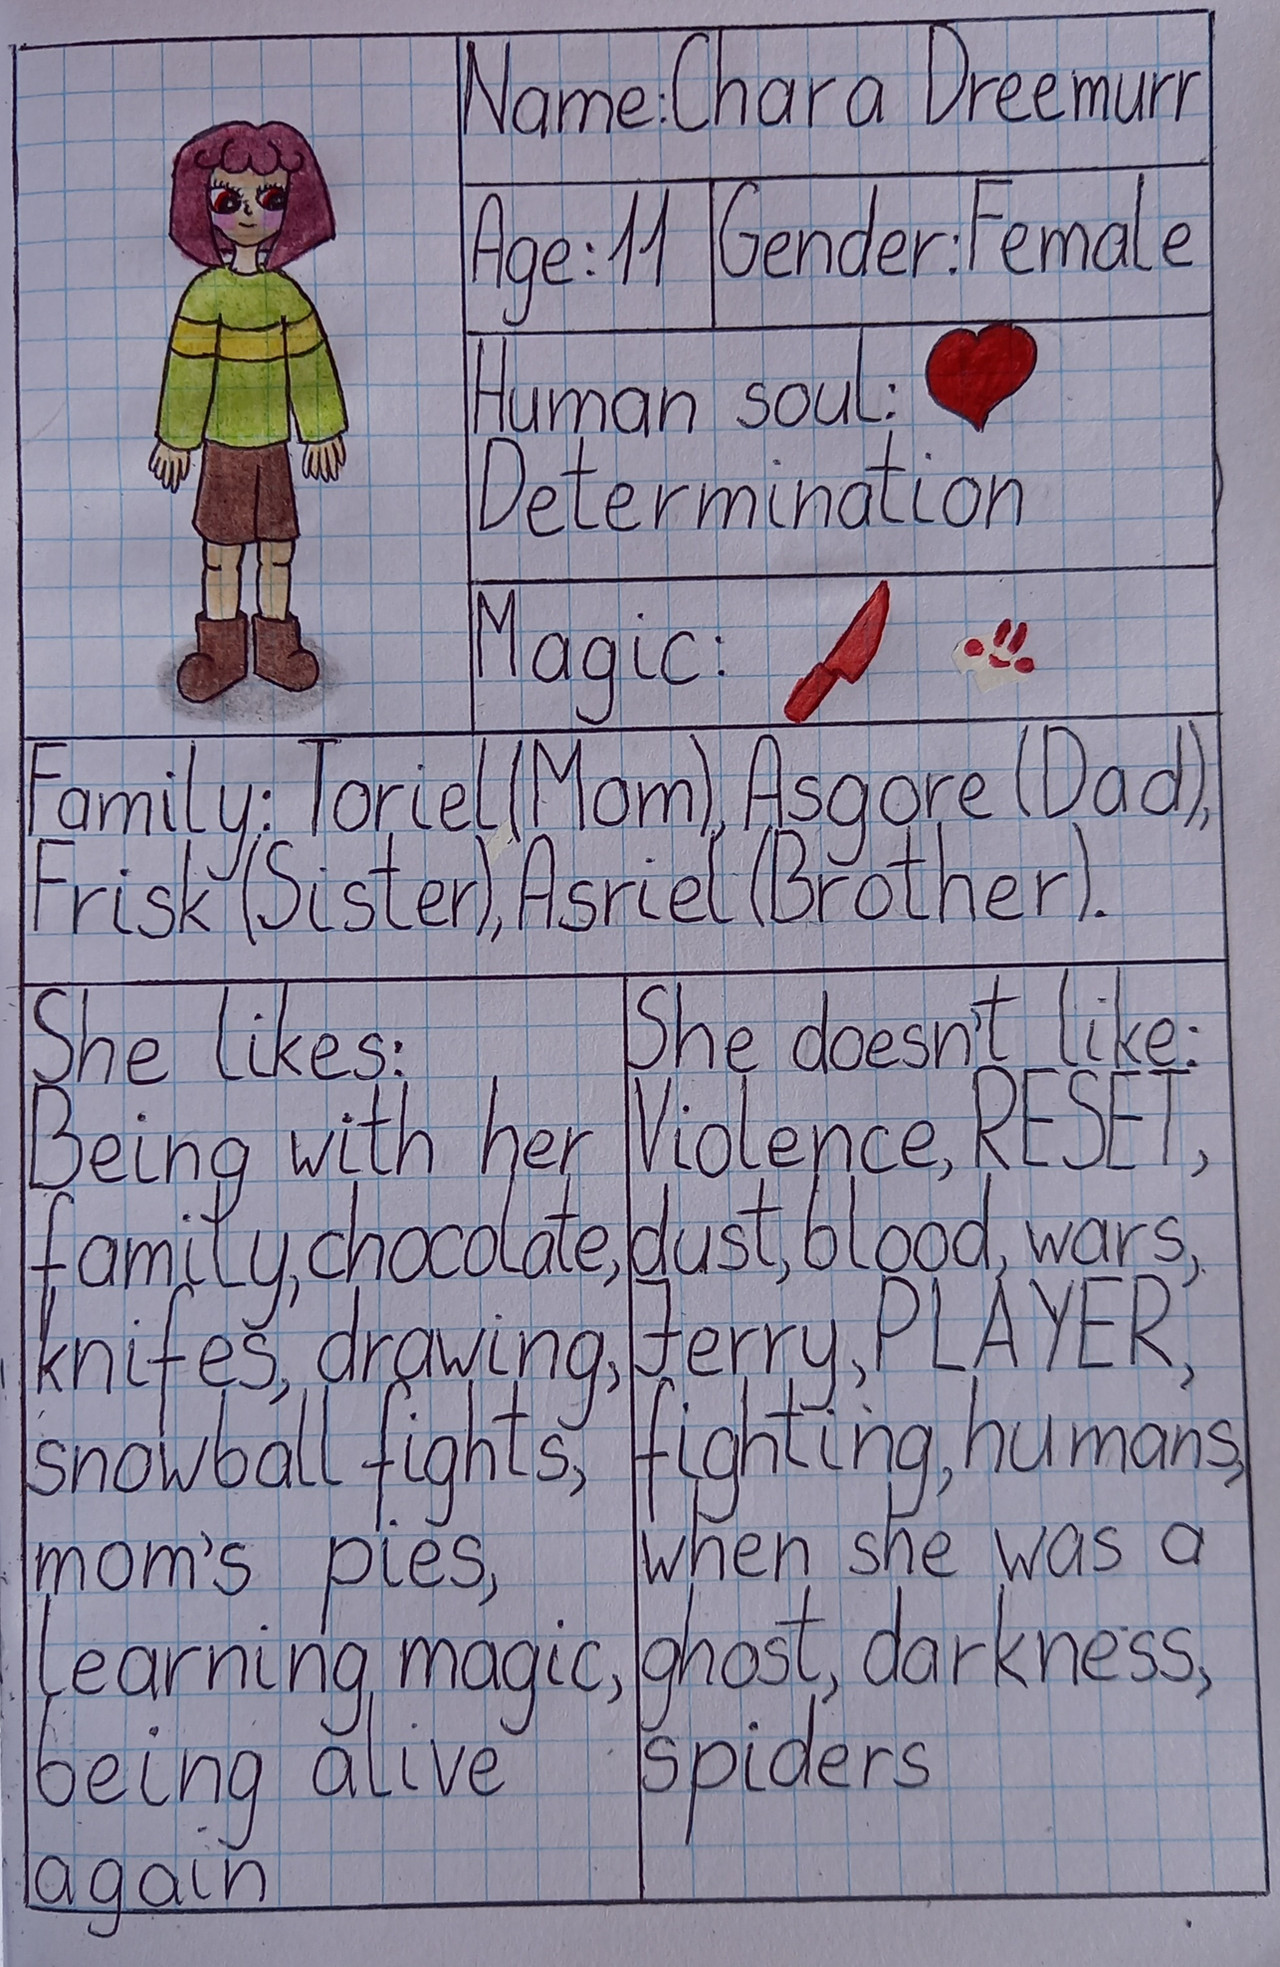 Name:Chara Dreemurr
Age:11
Gender:Female
Human soul:
Determination
Magic:
Family: Toriel(Mom), Asgore (Dad),
Frisk (Sister), Asriel (Brother).
She likes:
Being with her
family, chocolate,
knifes, drawing,
snowball fights,
mom's pies,
learning magic,
being alive
again
She doesn't like:
Violence, RESET,
dust, blood, wars,
Jerry, PLAYER,
fighting, humans,
when she was a
ghost, darkness,
spiders